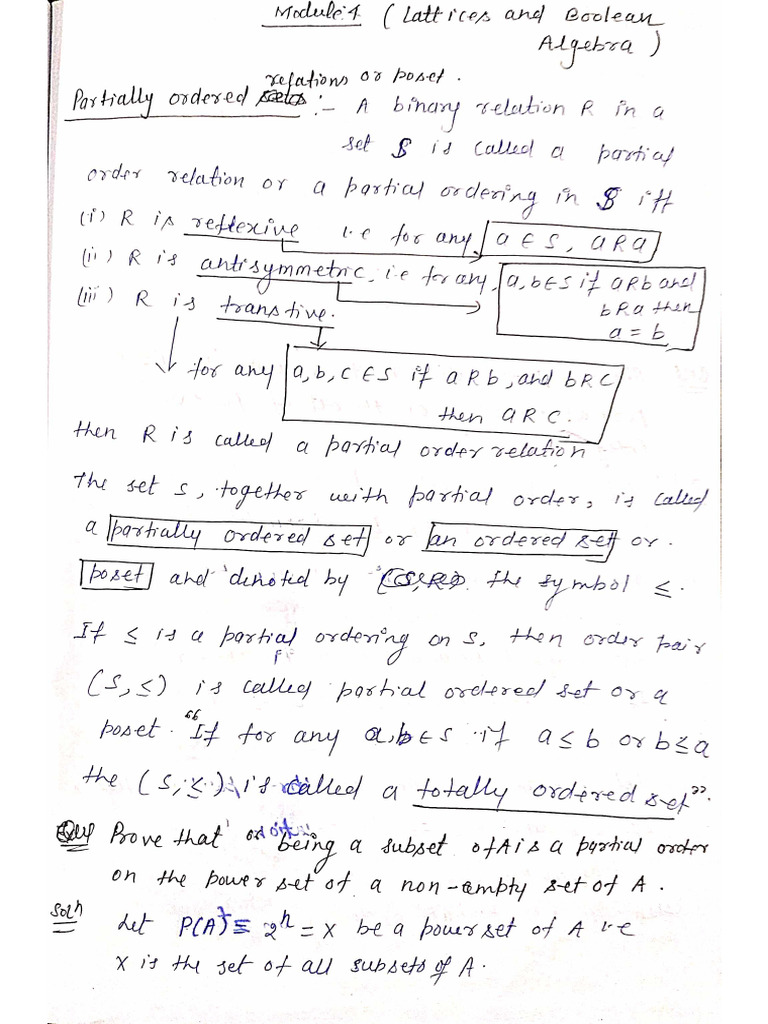 Module:1 (Lattices and Boolean
Algebra)
relations or poset.
Partially ordered :- A binary relation R in a
set S is called a partial
order relation or a partial ordering in S iff
(i) R is reflexive i.e for any a ∈ S, aRa
(ii) R is antisymmetric, i.e for any, a, b ∈ S if aRb and
bRa then
a = b
(iii) R is transtive.
for any a, b, c ∈ S if aRb, and bRC
then aRC.
then R is called a partial order relation
The set S, together with partial order, is called
a partially ordered set or an ordered set or
poset and denoted by the symbol ≤.
If ≤ is a partial ordering on S, then order pair
(S, ≤) is called partial ordered set or a
poset. "If for any a, b ∈ S if a ≤ b or b ≤ a
the (S, ≤) is called a totally ordered set".
Prove that being a subset of A is a partial order
on the power set of a non-empty set of A.
Solⁿ Let P(A) = 2ⁿ = X be a power set of A i.e
X is the set of all subsets of A.